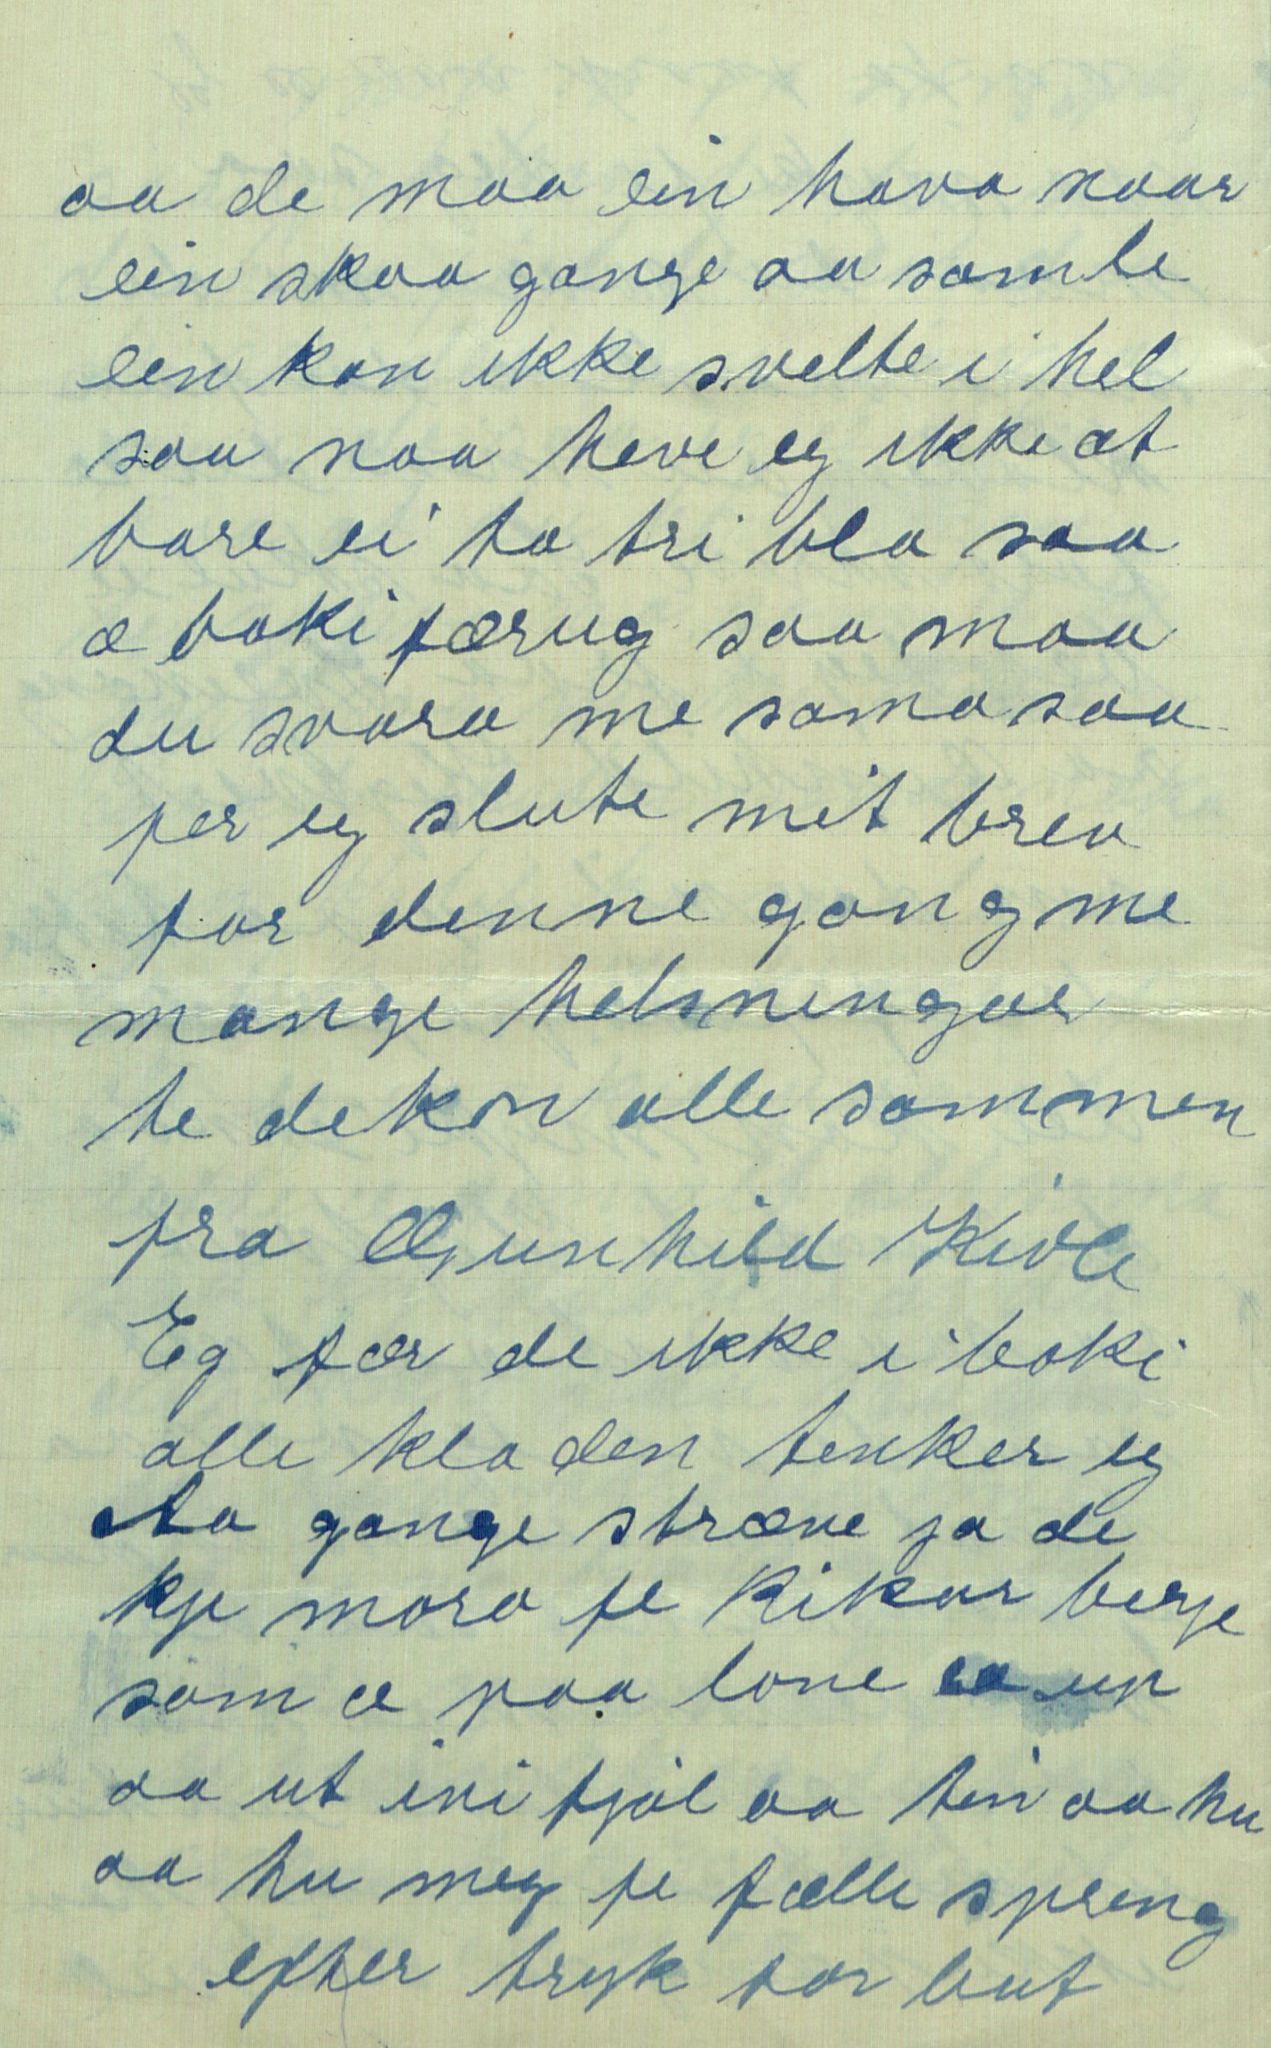 aa de maa ein hava naar
ein skaa gange aa samle
ein kan ikke svelte i hel
saa naa heve eg ikke at
bare ei to tri bla saa
æ boki færug saa maa
du svara me sama saa
fer eg slute mit brev
for denne gang me
mange helsningar
te dekon alle sammen
fra Gunhild Kivle
Eg fær de ikke i boki
alle kladen tenker eg
Aa gange stræve ja de
kje moro fe Kikar berje
som æ paa lone up
aa ut ivi fjøl aa tin aa hu
aa hu meg fe fælle spreng
efter tryk for but